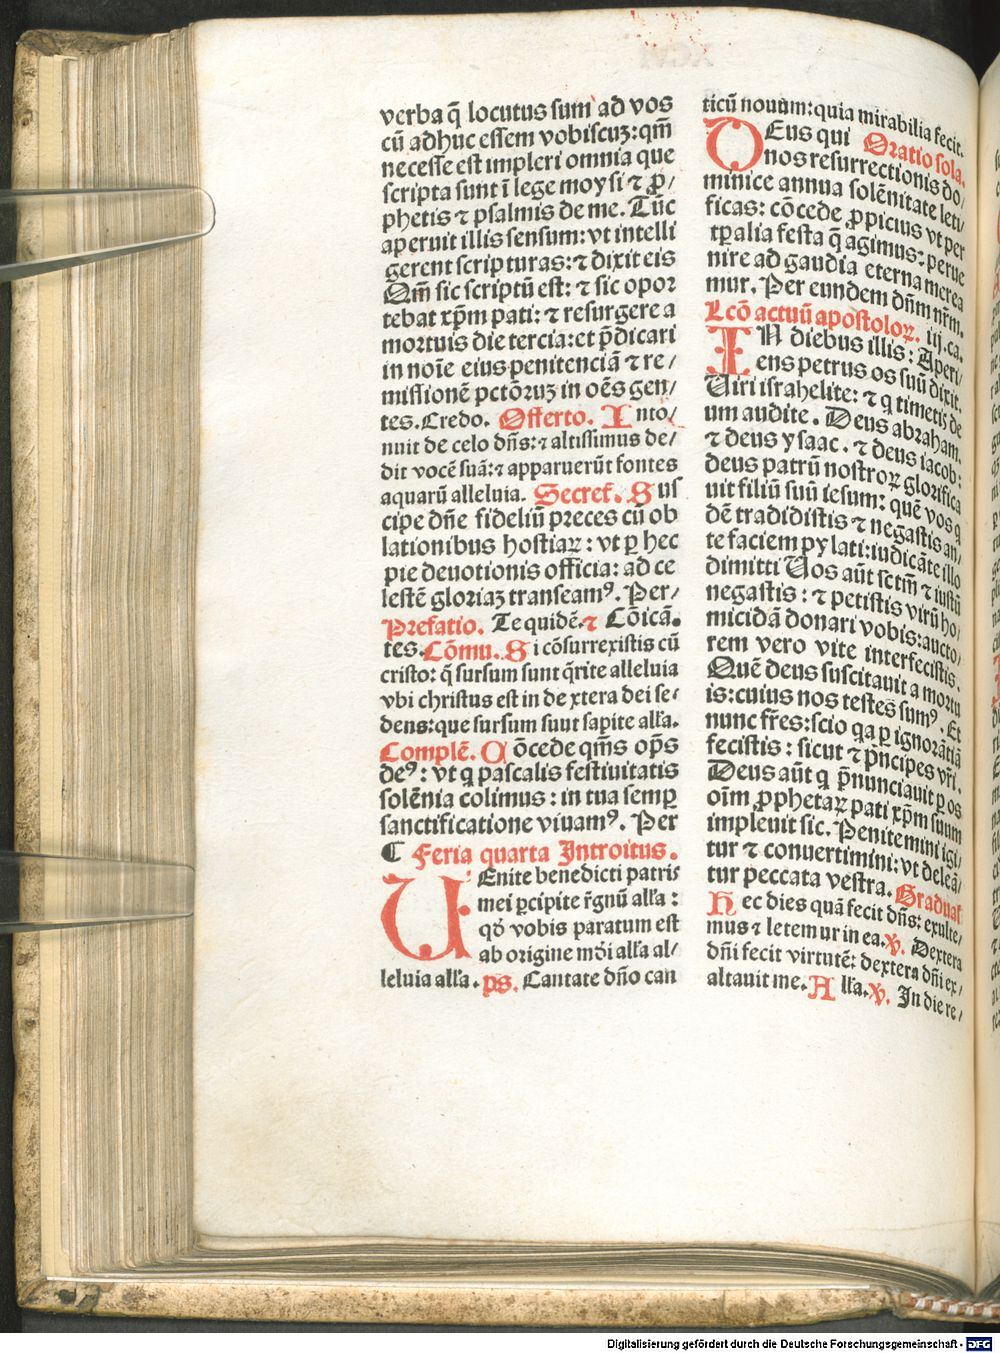 verba q̄ locutus sum ad vos
cū adhuc essem vobiscuꝫ: qm̄
necesse est impleri omnia que
scripta sunt ī lege moysi ⁊ ꝓ/
phetis ⁊ psalmis de me. Tūc
aperuit illis sensum: vt intelli
gerent scripturas: ⁊ dixit eis
Qm̄ sic scriptū est: ⁊ sic opor
tebat xp̄m pati: ⁊ resurgere a
mortuis die tercia: et p̄dicari
in noīe eius penitenciā ⁊ re/
missionē pctōruꝫ in oēs gen/
tes. Credo. Offerto. Into/
nuit de celo dn̄s: ⁊ altissimus de/
dit vocē suā: ⁊ apparuerūt fontes
aquarū alleluia. Secret. Sus
cipe dn̄e fideliū preces cū ob
lationibus hostiaꝝ: vt ꝑ hec
pie deuotionis officia: ad ce
lestē gloriaꝫ transeamꝰ. Per/
Prefatio. Te quidē. ⁊ Cōicā.
tes. Cōmu. Si cōsurrexistis cū
cristo: q̄ sursum sunt q̄rite alleluia
vbi christus est in dextera dei se/
dens: que sursum suut sapite all'a.
Complē. Cōcede qm̄s op̄s
deꝰ: vt q pascalis festiuitatis
solēnia colimus: in tua semꝑ
sanctificatione viuamꝰ. Per
C Feria quarta Introitus.
UEnite benedicti patris
mei ꝑcipite r̄gnū all'a:
qd̛ vobis paratum est
ab origine mōi all'a al/
leluia all'a. ps. Cantate dn̄o can
ticū nouum: quia mirabilia fecit.
DEus qui Oratio sola.
nos resurrectionis do/
minice annua solēnitate leti/
ficas: cōcede ꝓpicius vt per
tꝑalia festa q̄ agimus: perue
nire ad gaudia eterna merea
mur. Per eundem dn̄m nr̄m.
Lcō actuū apostoloꝝ. iij. ca.
IN diebus illis: Aperi/
ens petrus os suū dixit.
Uiri israhelite: ⁊ q timetis de
um audite. Deus abraham.
⁊ deus ysaac. ⁊ deus iacob:
deus patrū nostroꝝ glorifica
uit filiū suū iesum: quē vos q
dē tradidistis ⁊ negastis an/
te faciem pylati: iudicāte illo
dimitti Uos aūt sctm̄ ⁊ iustū
negastis: ⁊ petistis virū ho/
micidā donari vobis: aucto/
rem vero vite interfecistis.
Quē deus suscitauit a mortu
is: cuius nos testes sumꝰ. Et
nunc fr̄es: scio qa ꝑ ignorātiā
fecistis: sicut ⁊ p̄ncipes vr̄i.
Deus aūt q p̄nunciauit ꝑ os
oīm ꝓphetaꝝ pati xp̄m suum
impleuit sic. Penitemini igi/
tur ⁊ conuertimini: vt deleā/
tur peccata vestra. Gradual'
Hec dies quā fecit dn̄s: exulte/
mus ⁊ letemur in ea. ꝟ. Dextera
dn̄i fecit virtutē: dextera dn̄i ex/
altauit me. All'a. ꝟ. In die re/
Digitalisierung gefördert durch die Deutsche Forschungsgemeinschaft - DFG